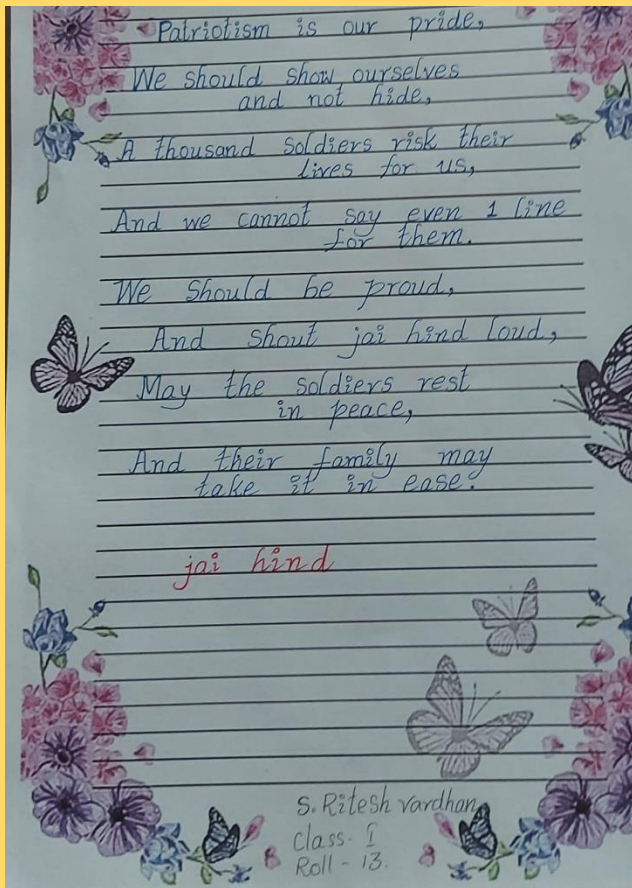 Patriotism is our pride,
We should show ourselves
and not hide,
A thousand soldiers risk their
lives for us,
And we cannot say even 1 line
for them.
We should be proud,
And shout jai hind loud,
May the soldiers rest
in peace,
And their family may
take it in ease.
jai hind
S. Ritesh vardhan
Class- I
Roll - 13.